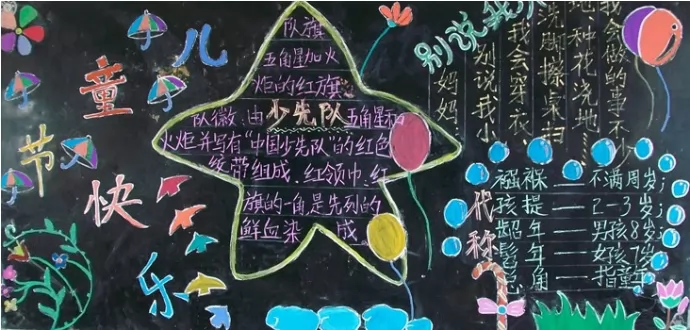 儿
童
节
快
乐
队旗
五角星加火
炬的红旗
队徽:由少先队五角星和
火炬并写有“中国少先队”的红色
绶带组成、红领巾、红
旗的一角是先烈的
鲜血染 成。
别说我小
妈妈:
别说我小
我会穿衣、
洗脚擦桌扫
地、种花浇地
我会做的事不少
代
称
襁褓——不满周岁;
孩提——2-3岁;
龆年——男孩8岁;
髫年——女孩7岁
总角——指童